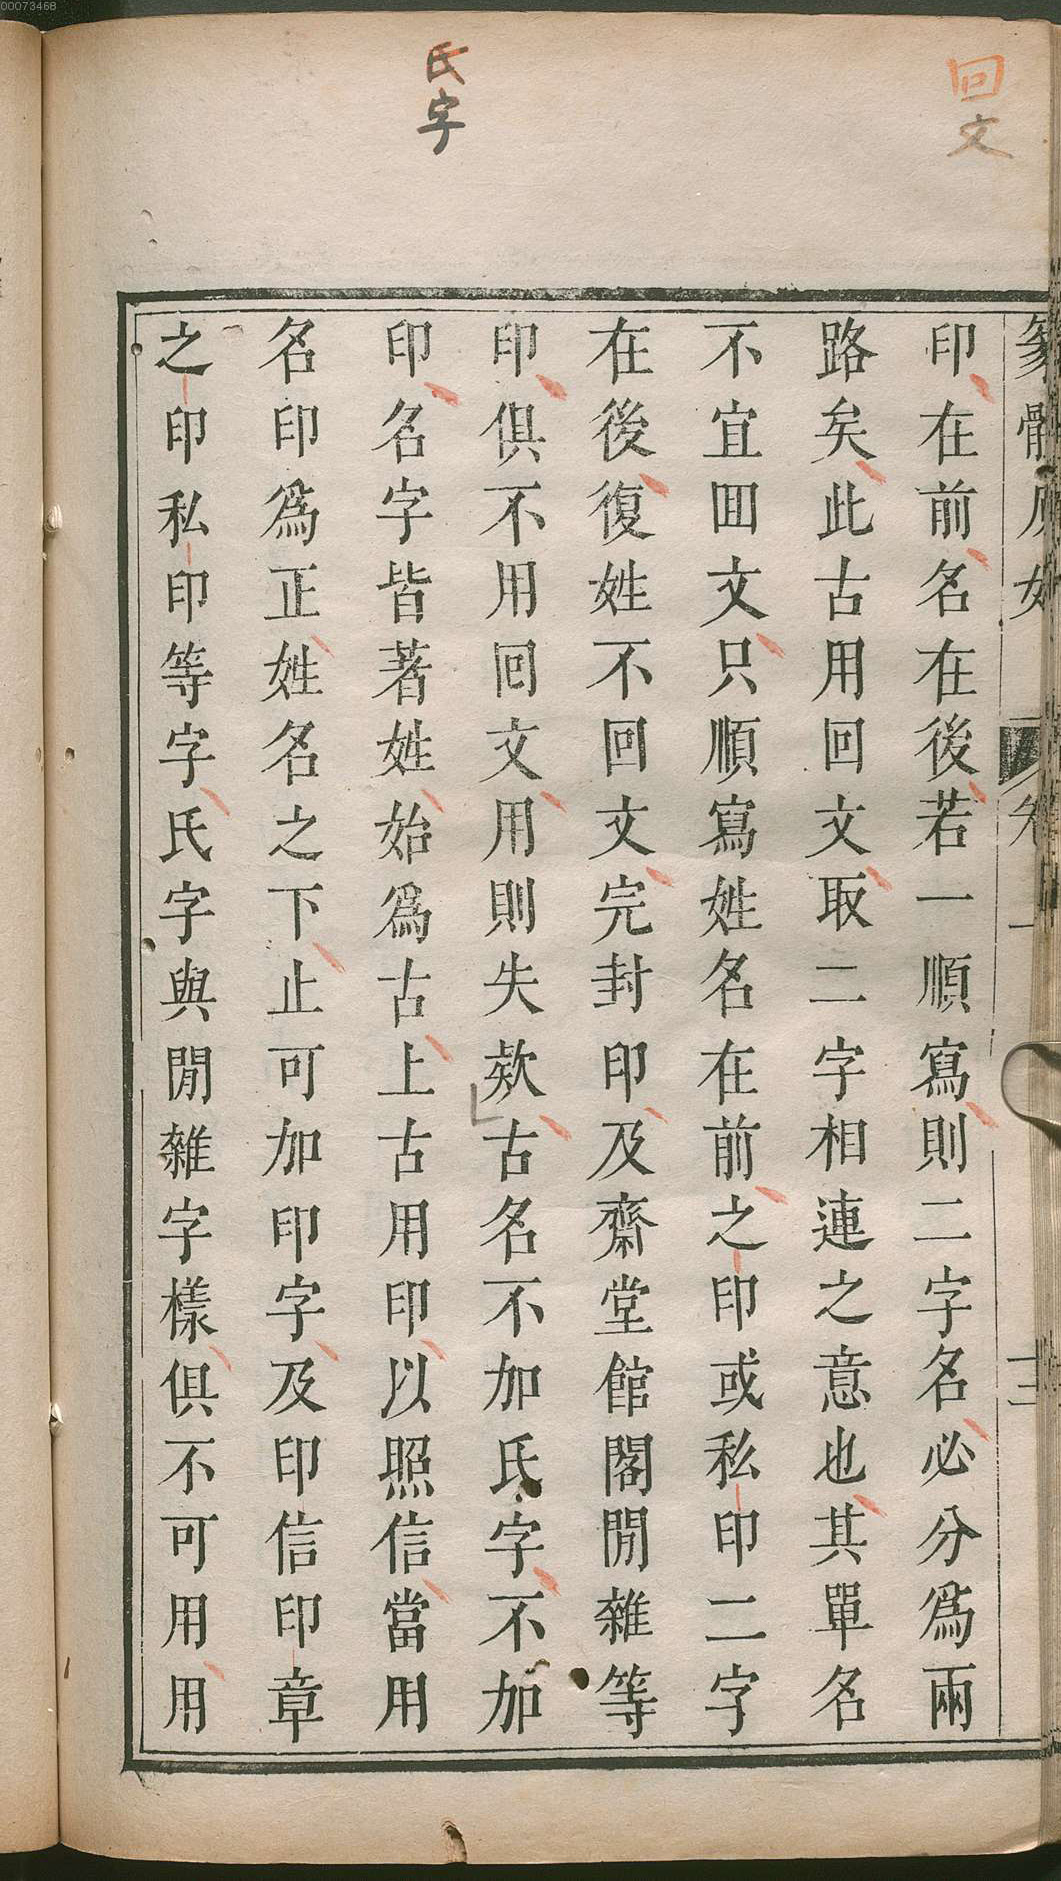 00073468
回文
氏字
印在前名在後若一順寫則二字名必分爲兩
路矣此古用回文取二字相連之意也其單名
不宜囬文只順寫姓名在前之印或私印二字
在後復姓不回文完封印及齋堂館閣閒雜等
印俱不用回文用則失欵古名不加氏字不加
印名字皆著姓始爲古上古用印以照信當用
名印爲正姓名之下止可加印字及印信印章
之印私印等字氏字與閒雜字樣俱不可用用